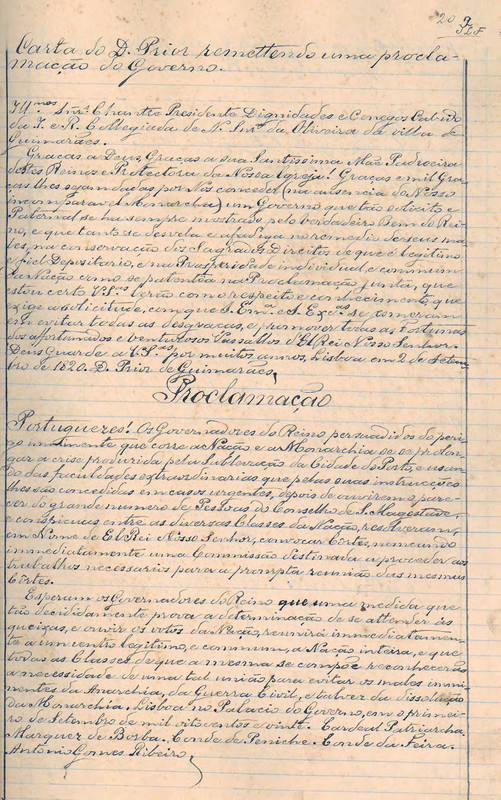 20
Carta do D. Prior remettendo uma procla-
mação do Governo.
Ill.mos Snr.s Chantre Presidente Dignidades e Conegos Cabido
da I. e R. Collegiada de N. Snr.a da Oliveira da villa de
Guimarães.
Graças a Deus, Graças a sua Santissima Mãe Padroeira
d'estes Reinos e Protectora da Nossa Igreja! Graças e mil Gra-
ças lhes sejam dadas por Nos conceder (na ausencia do Nosso
incomparavel Monarcha) um Governo que tão solicito e
Paternal se ha sempre mostrado pelo verdadeiro Bem do Rei-
no, e que tanto se desvela e afadiga no remedio de seus ma-
les, na conservação dos Sagrados Direitos de que é legitimo
e fiel Depositario, e na Prosperidade individual, e commum
da Nação como se patentêa na Proclamação junta, que
estou certo V.S.as lerão com o respeito e conhecimento que
exige a solicitude, com que S. Em.a e S. Ex.as se esmeram
em evitar todas as desgraças, e promover todas as fortunas
dos affortunados e venturosos Vassallos d'El Rei Nosso Senhor.
Deus Guarde a V.S.as por muitos annos. Lisboa em 2 de Setem-
bro de 1820. D. Prior de Guimarães.
Proclamação
Portuguezes! Os Governadores do Reino, persuadidos do peri-
go imminente que corre a Nação e a Monarchia se se prolon-
gar a crise produzida pela Sublevação da Cidade do Porto, e usan-
do das faculdades extraordinarias que pelas suas instrucções
lhes são concedidas em casos urgentes, depois de ouvirem o pare-
cer do grande numero de Pessoas do Conselho de S. Magestade,
e conspicuas entre as diversas Classes da Nação, resolveram,
em Nome de El Rei Nosso Senhor, convocar Côrtes, nomeando
immediatamente uma Commissão destinada a proceder aos
trabalhos necessarios para a prompta reunião das mesmas
Côrtes.
Esperam os Governadores do Reino que uma medida que
tão decididamente prova a determinação de se attender ás
queixas, e ouvir os votos da Nação, reunirá immediatamen-
te a um centro legitimo, e commum, a Nação inteira, e que
todas as Classes de que a mesma se compõe reconhecerão
a necessidade de uma tal união para evitar os males immi-
nentes da Anarchia, da Guerra Civil, e talvez da dissolução
da Monarchia. Lisboa no Palacio do Governo, em o primei-
ro de Setembro de mil oitocentos e vinte. Cardeal Patriarcha.
Marquez de Borba. Conde de Peniche. Conde da Feira.
Antonio Gomes Ribeiro.